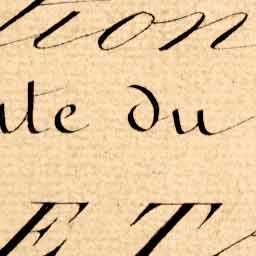 tion
te du
ET